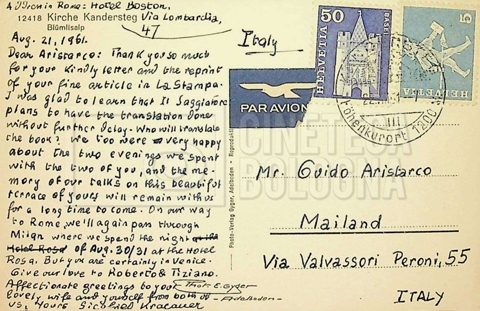 Address in Rome: Hotel Boston,
Via Lombardia,
47
12418 Kirche Kandersteg
Blümlisalp
Aug. 21, 1961.
Dear Aristarco: Thank you so much
for your kindly letter and the reprint
of your fine article in La Stampa.
I was glad to learn that Il Saggiatore
plans to have the translation done
without further delay. Who will translate
the book? We too were very happy
about the two evenings we spent
with the two of you, and the me-
mory of our talks on this beautiful
terrace of yours will remain with us
for a long time to come. On our way
to Rome, we'll again pass through
Milan where we spend the night
Hotel Rosa of Aug. 30/31 at the Hotel
Rosa. But you are certainly in Venice.
Give our love to Roberto & Tiziano.
Affectionate greetings to your
lovely wife and yourself from both of
us, Yours Siegfried Kracauer
Phot. E. Gyger
Adelboden
Photo-Verlag Gyger, Adelboden
Italy
PAR AVION
50
HELVETIA
BASEL
5
HELVETIA
KANDERSTEG
Höhenkurort 1200 m
CINETECA
BOLOGNA
Mr. Guido Aristarco
Mailand
Via Valvassori Peroni, 55
ITALY